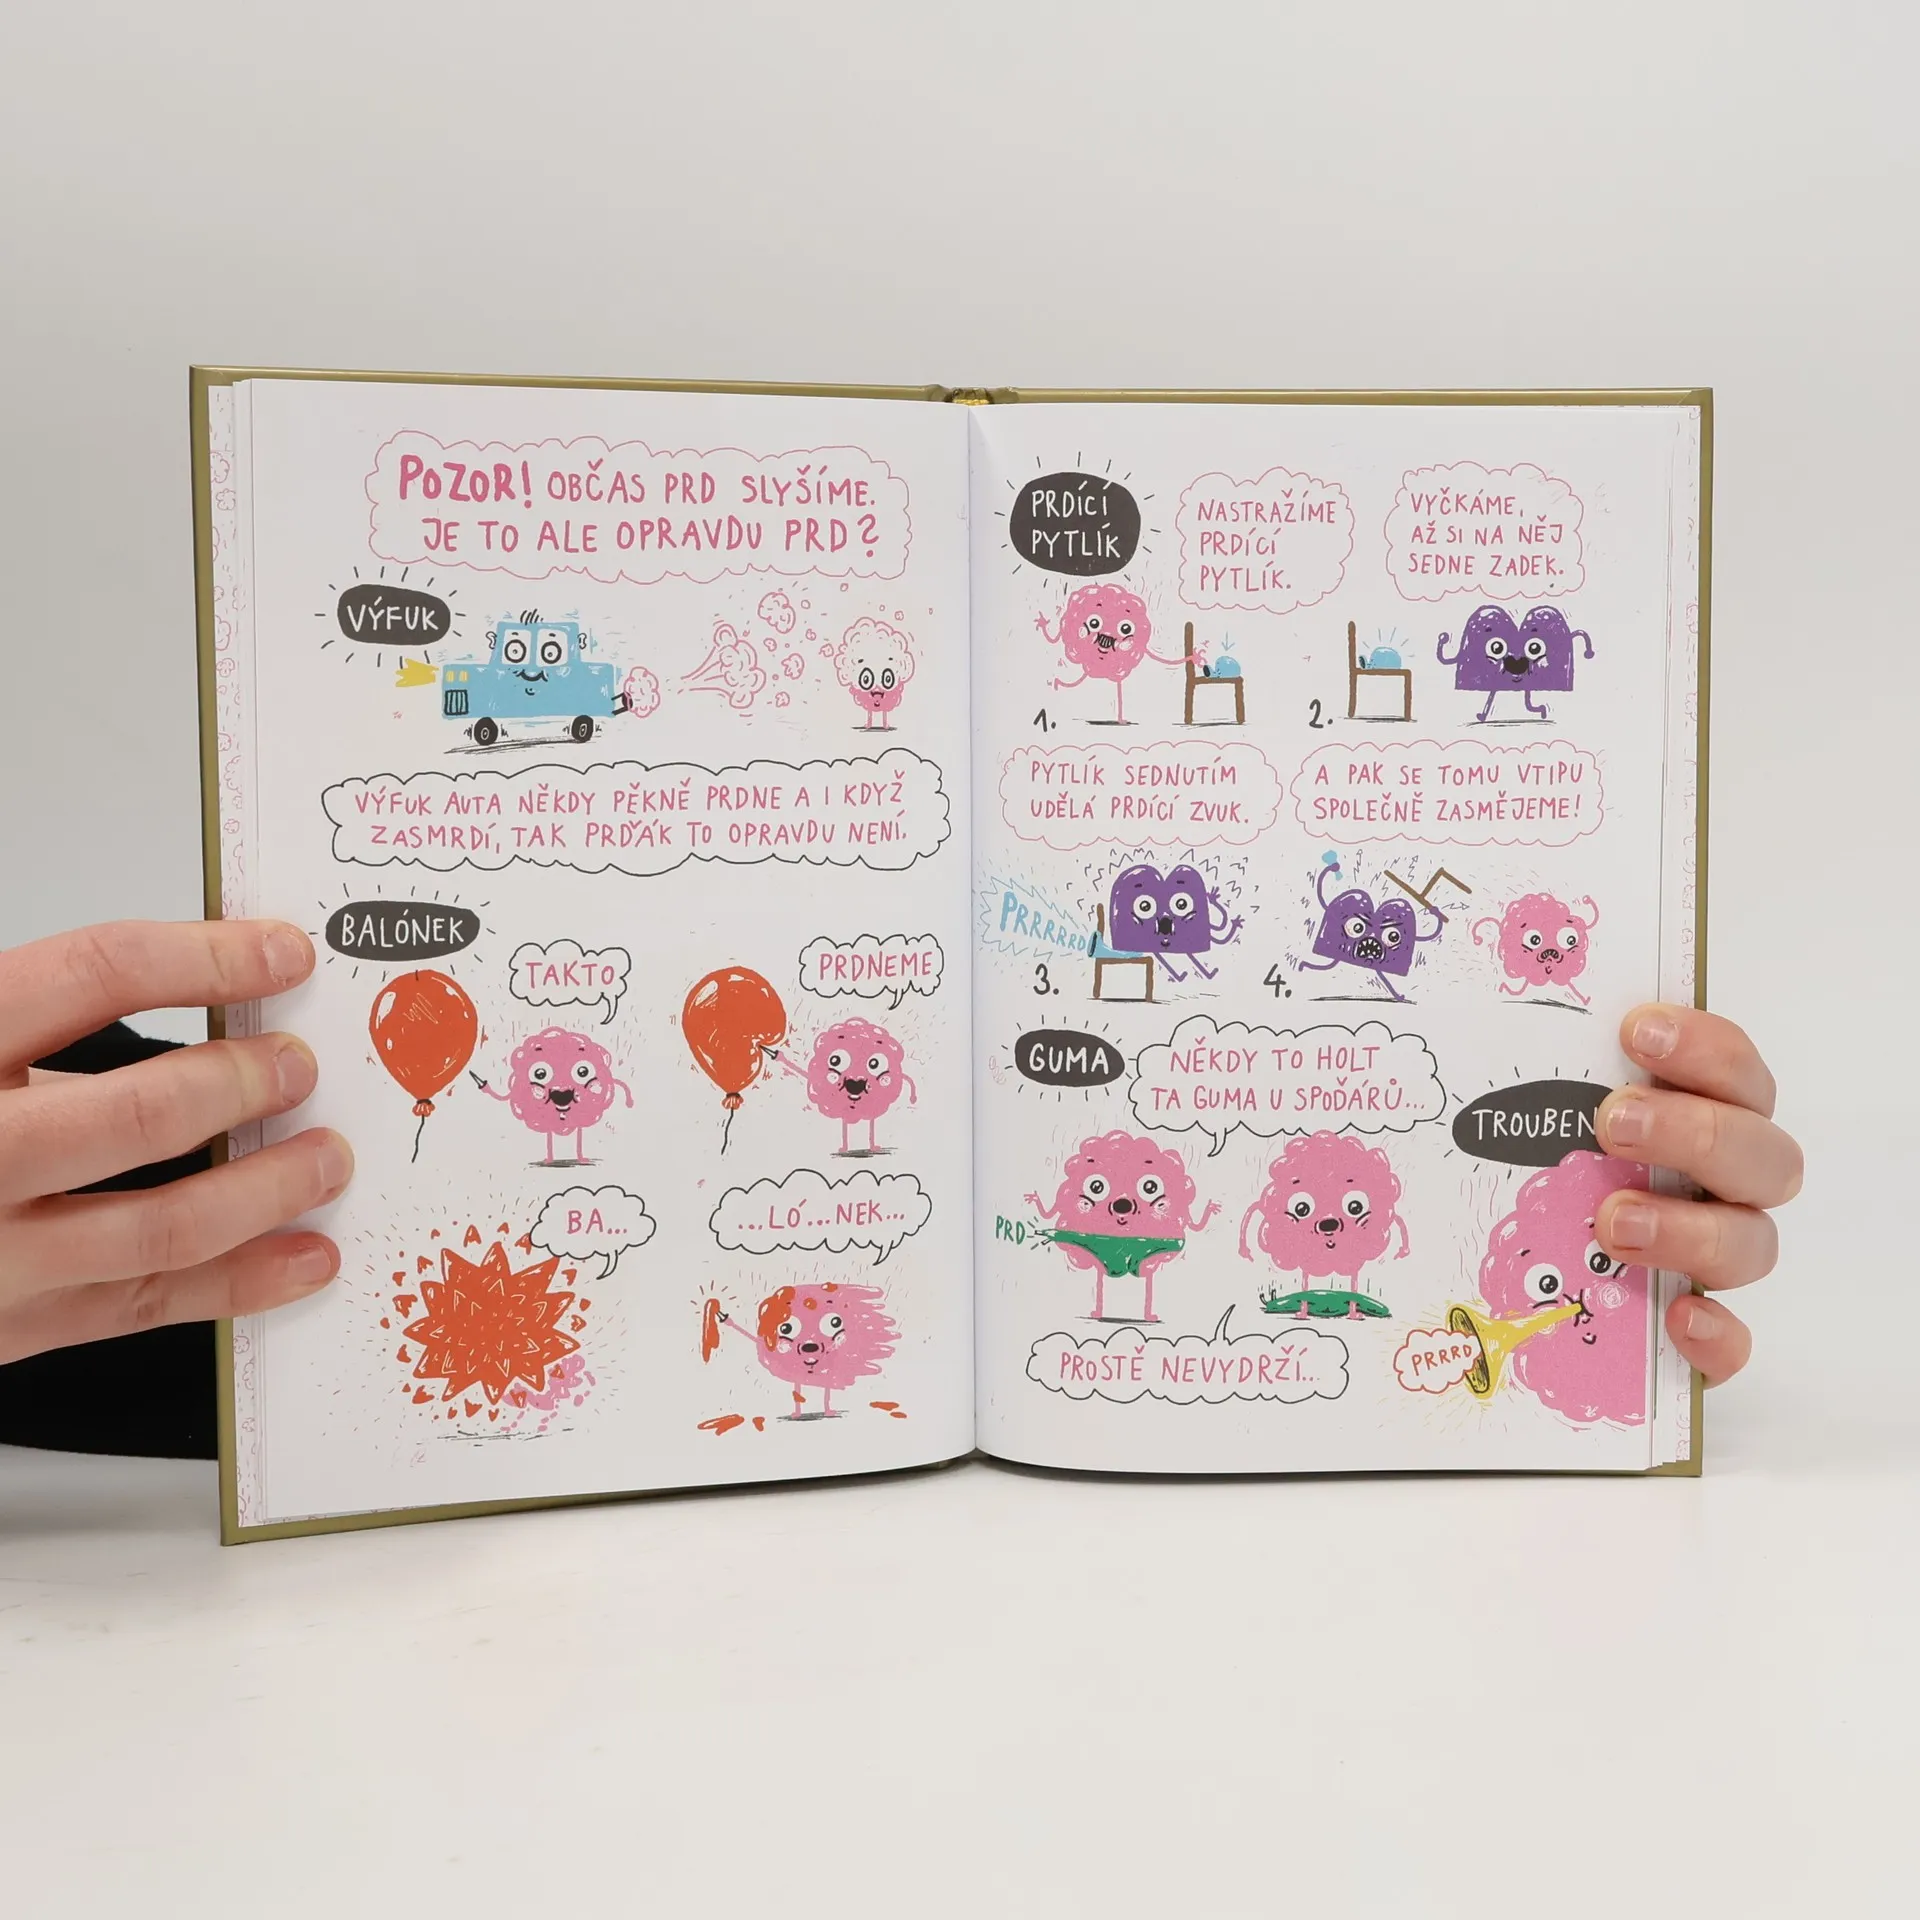 POZOR! OBČAS PRD SLYŠÍME.
JE TO ALE OPRAVDU PRD?
VÝFUK
VÝFUK AUTA NĚKDY PĚKNĚ PRDNE A I KDYŽ
ZASMRDÍ, TAK PRĎÁK TO OPRAVDU NENÍ.
BALÓNEK
TAKTO
PRDNEME
BA...
...LÓ...NEK...
PRDÍCÍ
PYTLÍK
NASTRAŽÍME
PRDÍCÍ
PYTLÍK.
1.
VYČKÁME,
AŽ SI NA NĚJ
SEDNE ZADEK.
2.
PYTLÍK SEDNUTÍM
UDĚLÁ PRDÍCÍ ZVUK.
PRRRRRD
3.
A PAK SE TOMU VTIPU
SPOLEČNĚ ZASMĚJEME!
4.
GUMA
NĚKDY TO HOLT
TA GUMA U SPOĎÁRŮ...
PRD
PROSTĚ NEVYDRŽÍ...
TROUBEN
PRRRD